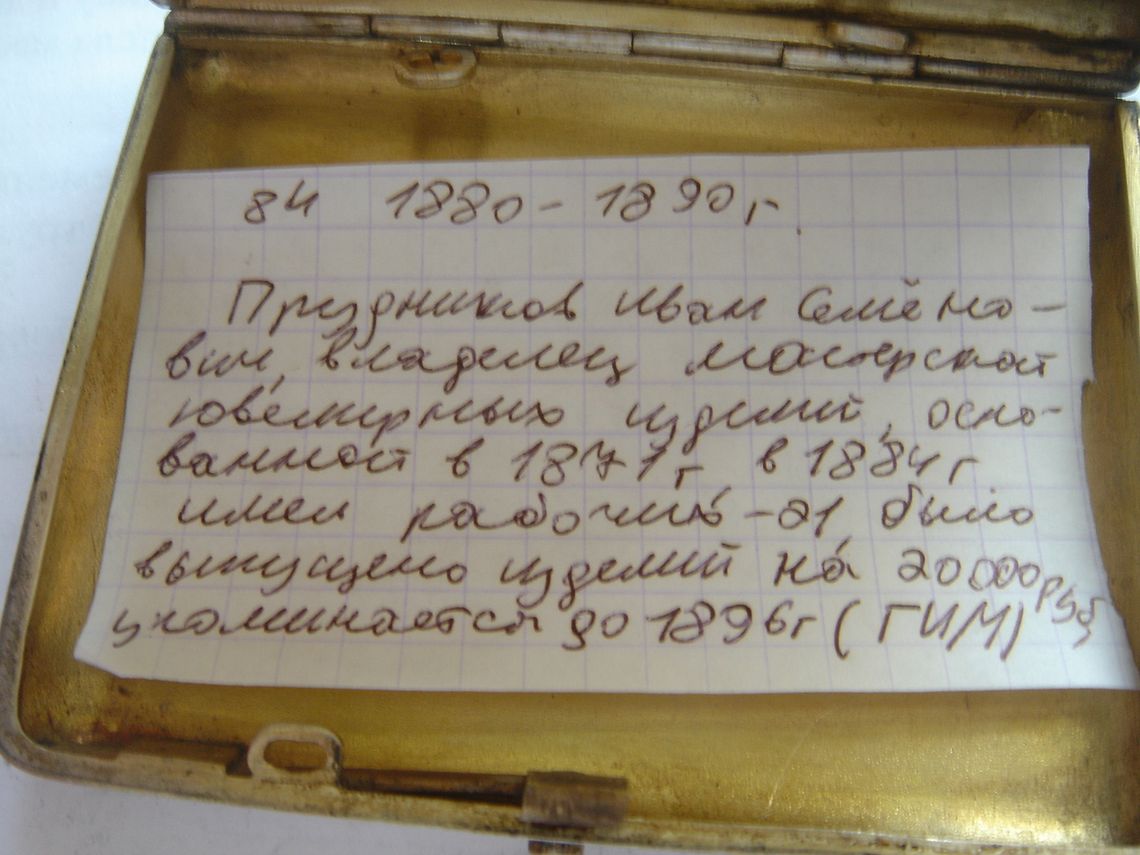 84 1880 - 1890 г
Праздников Иван Семёно-
вич, владелец мастерской
ювелирных изделий, осно-
ванной в 1871 г, в 1884 г
имел рабочих - 21, было
выпущено изделий на 20000 руб,
упоминается до 1896 г (ГИМ)